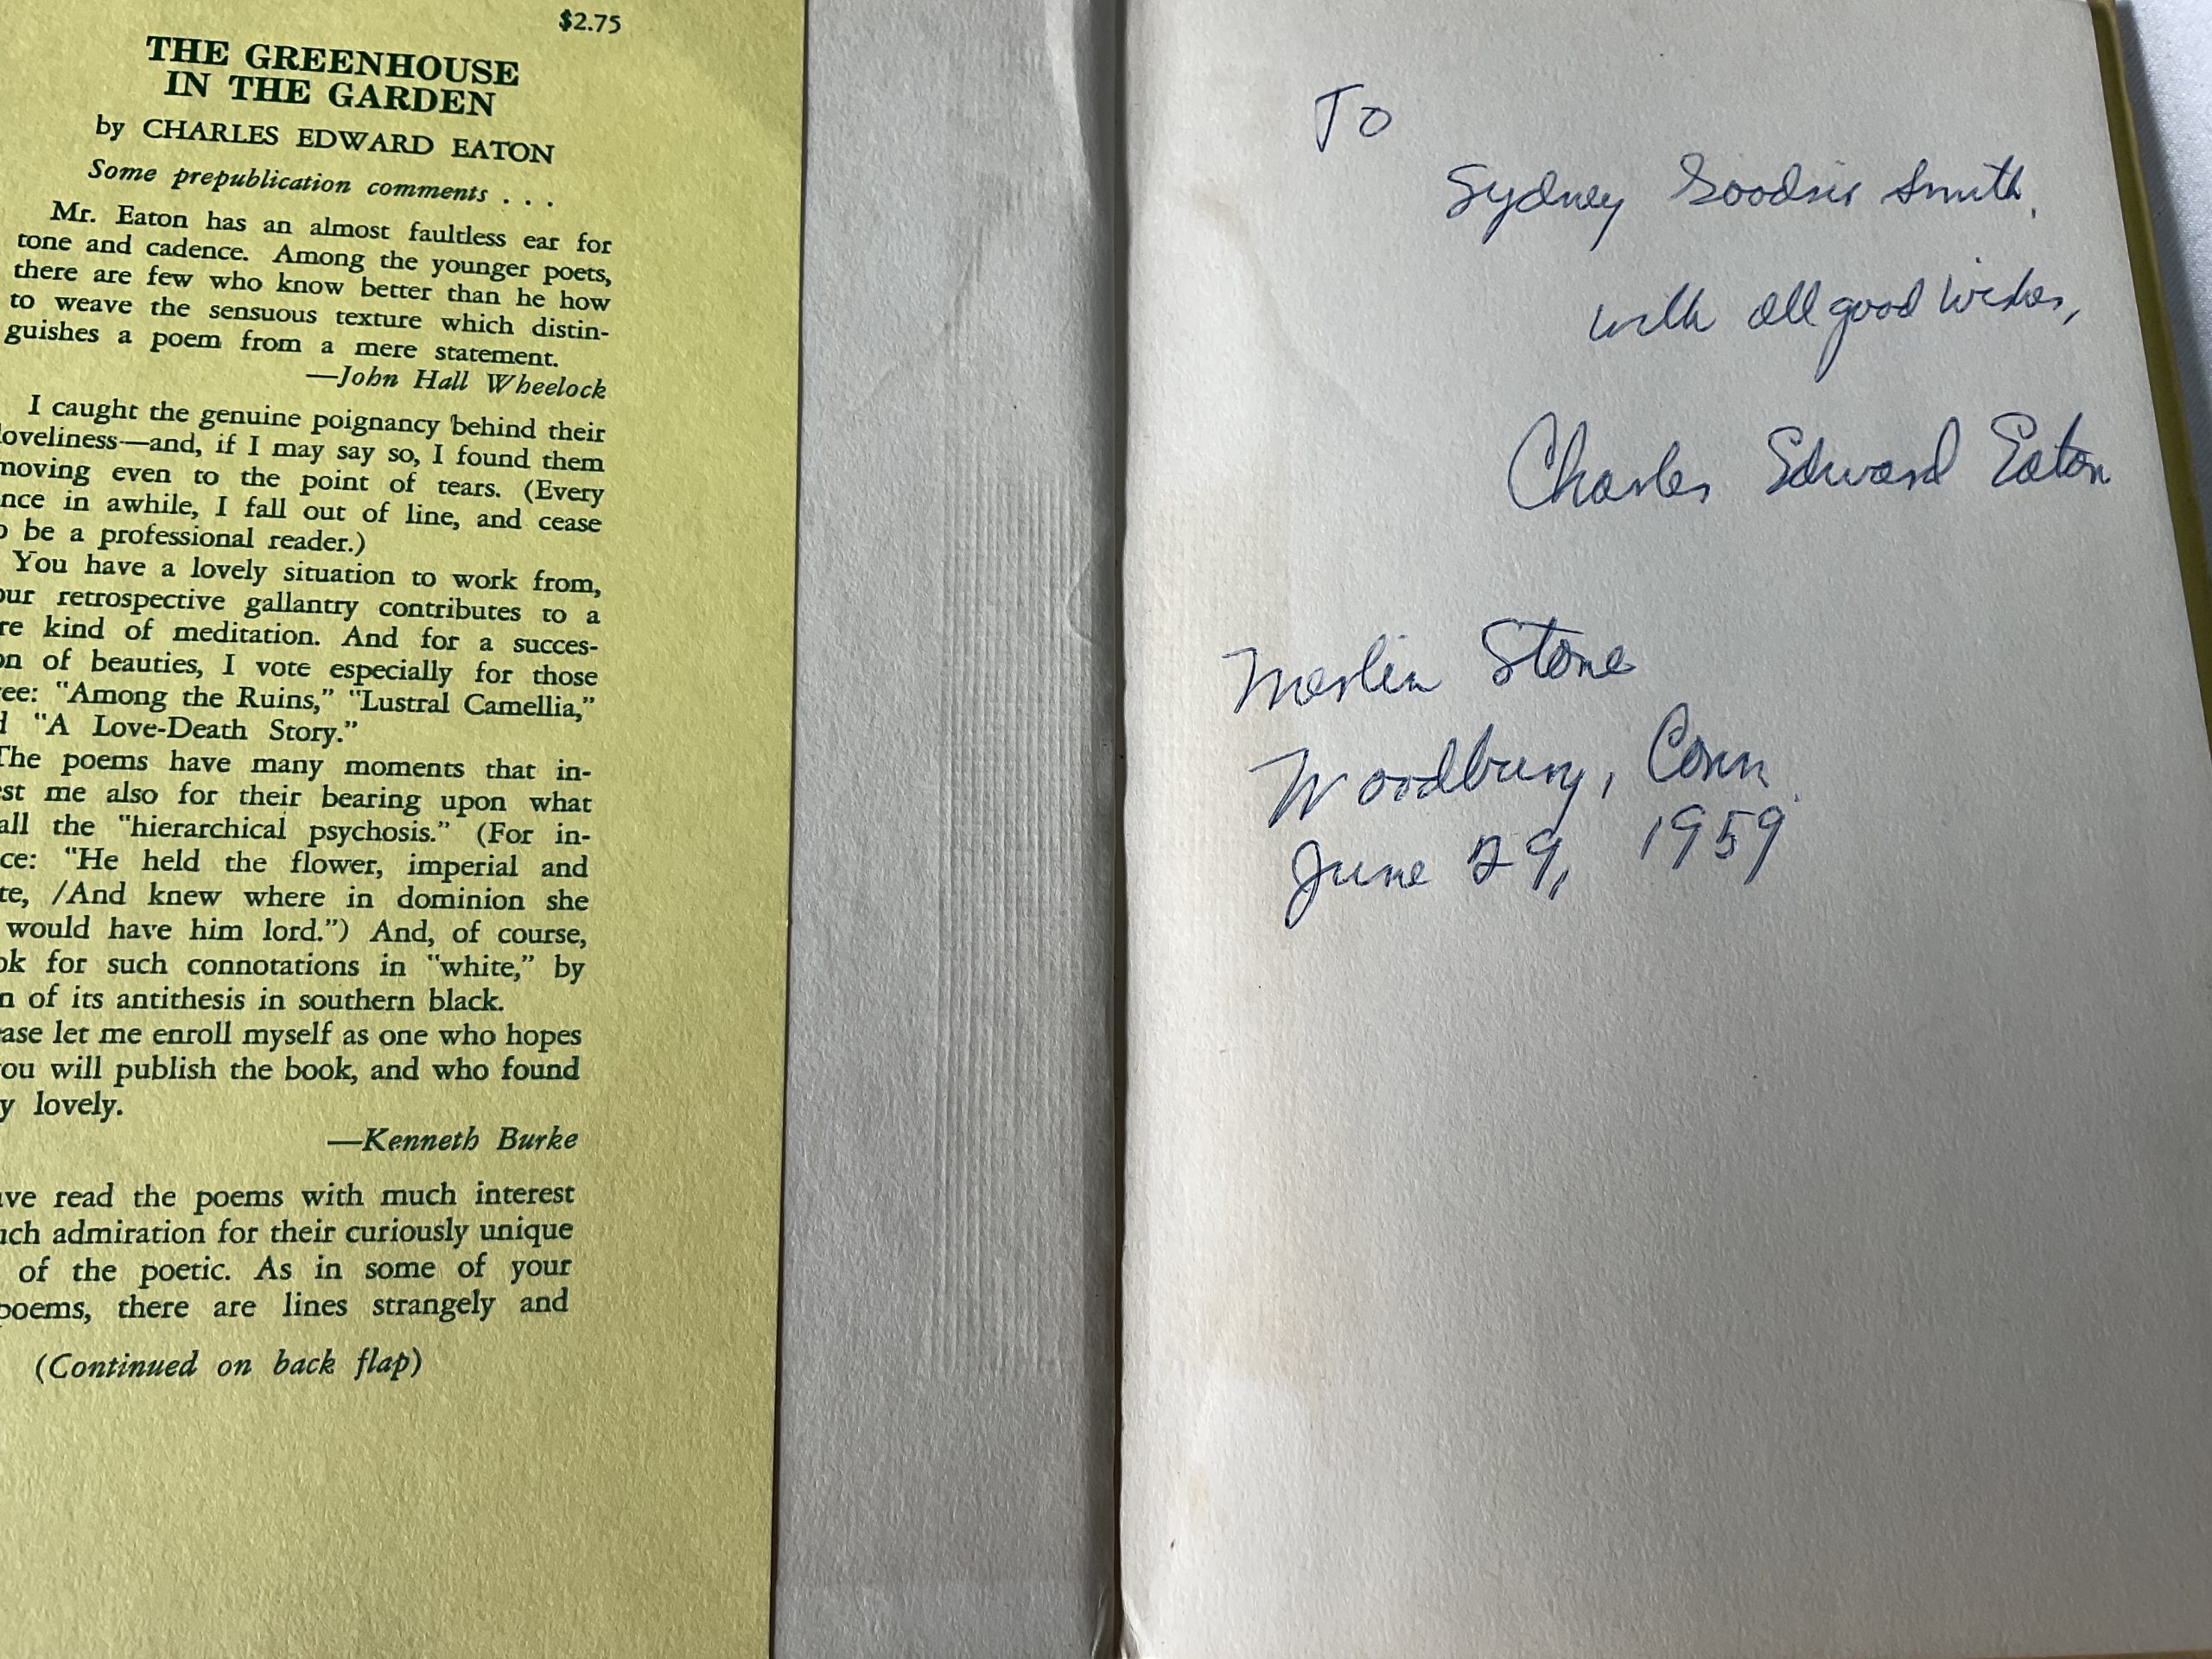 $2.75
THE GREENHOUSE
IN THE GARDEN
by CHARLES EDWARD EATON
Some prepublication comments . . .
Mr. Eaton has an almost faultless ear for
tone and cadence. Among the younger poets,
there are few who know better than he how
to weave the sensuous texture which distin-
guishes a poem from a mere statement.
—John Hall Wheelock
I caught the genuine poignancy behind their
loveliness—and, if I may say so, I found them
moving even to the point of tears. (Every
nce in awhile, I fall out of line, and cease
o be a professional reader.)
You have a lovely situation to work from,
our retrospective gallantry contributes to a
re kind of meditation. And for a succes-
on of beauties, I vote especially for those
ree: "Among the Ruins," "Lustral Camellia,"
d "A Love-Death Story."
The poems have many moments that in-
est me also for their bearing upon what
all the "hierarchical psychosis." (For in-
ce: "He held the flower, imperial and
te, /And knew where in dominion she
would have him lord.") And, of course,
ok for such connotations in "white," by
n of its antithesis in southern black.
ease let me enroll myself as one who hopes
you will publish the book, and who found
y lovely.
—Kenneth Burke
ave read the poems with much interest
uch admiration for their curiously unique
of the poetic. As in some of your
poems, there are lines strangely and
(Continued on back flap)
To
Sydney Goodsir Smith,
with all good wishes,
Charles Edward Eaton
Merlin Stone
Woodbury, Conn.
June 29, 1959